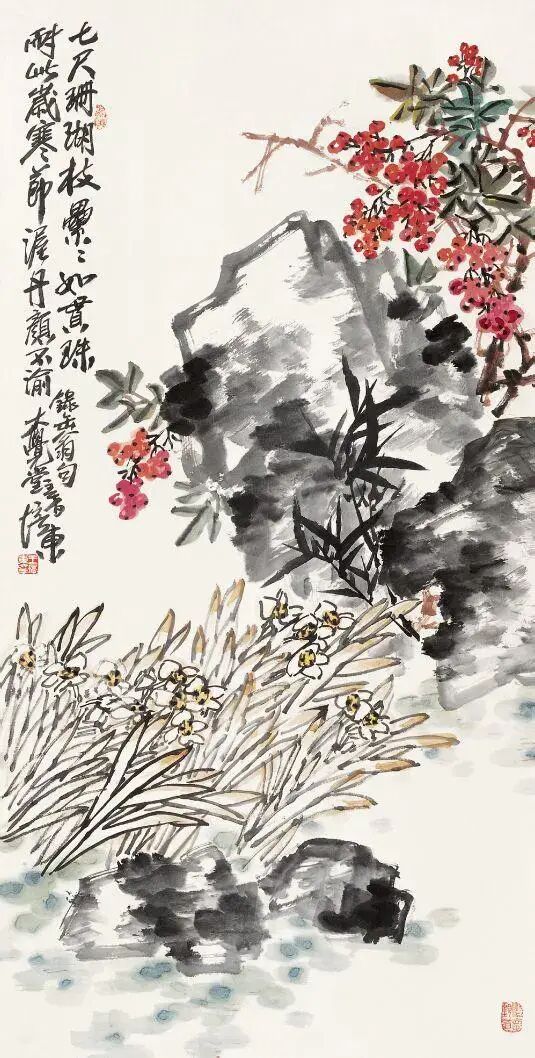 七尺珊瑚枝纍〻如貫珠
耐此歲寒節渥丹顏不渝
錄缶翁句
大覺堂培東